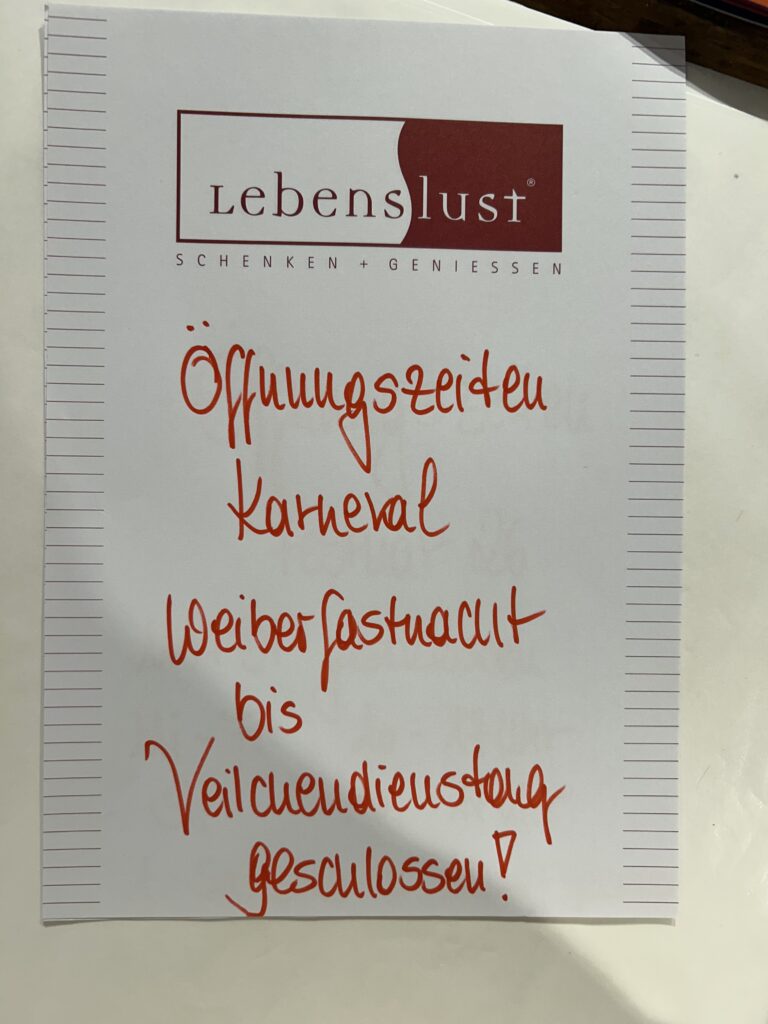 Lebenslust®
SCHENKEN + GENIESSEN
Öffnungszeiten
Karneval
Weiberfastnacht
bis
Veilchendienstag
geschlossen!